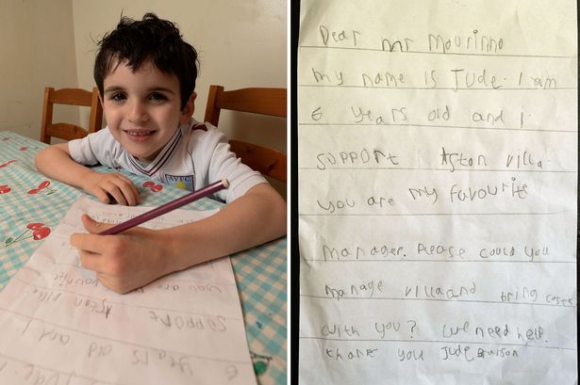 Dear mr Mourinho
my name is Jude. I am
6 years old and I
support Aston villa.
you are my favourite
manager. Please could you
manage villa and bring
with you? We need help.
thank you Jude